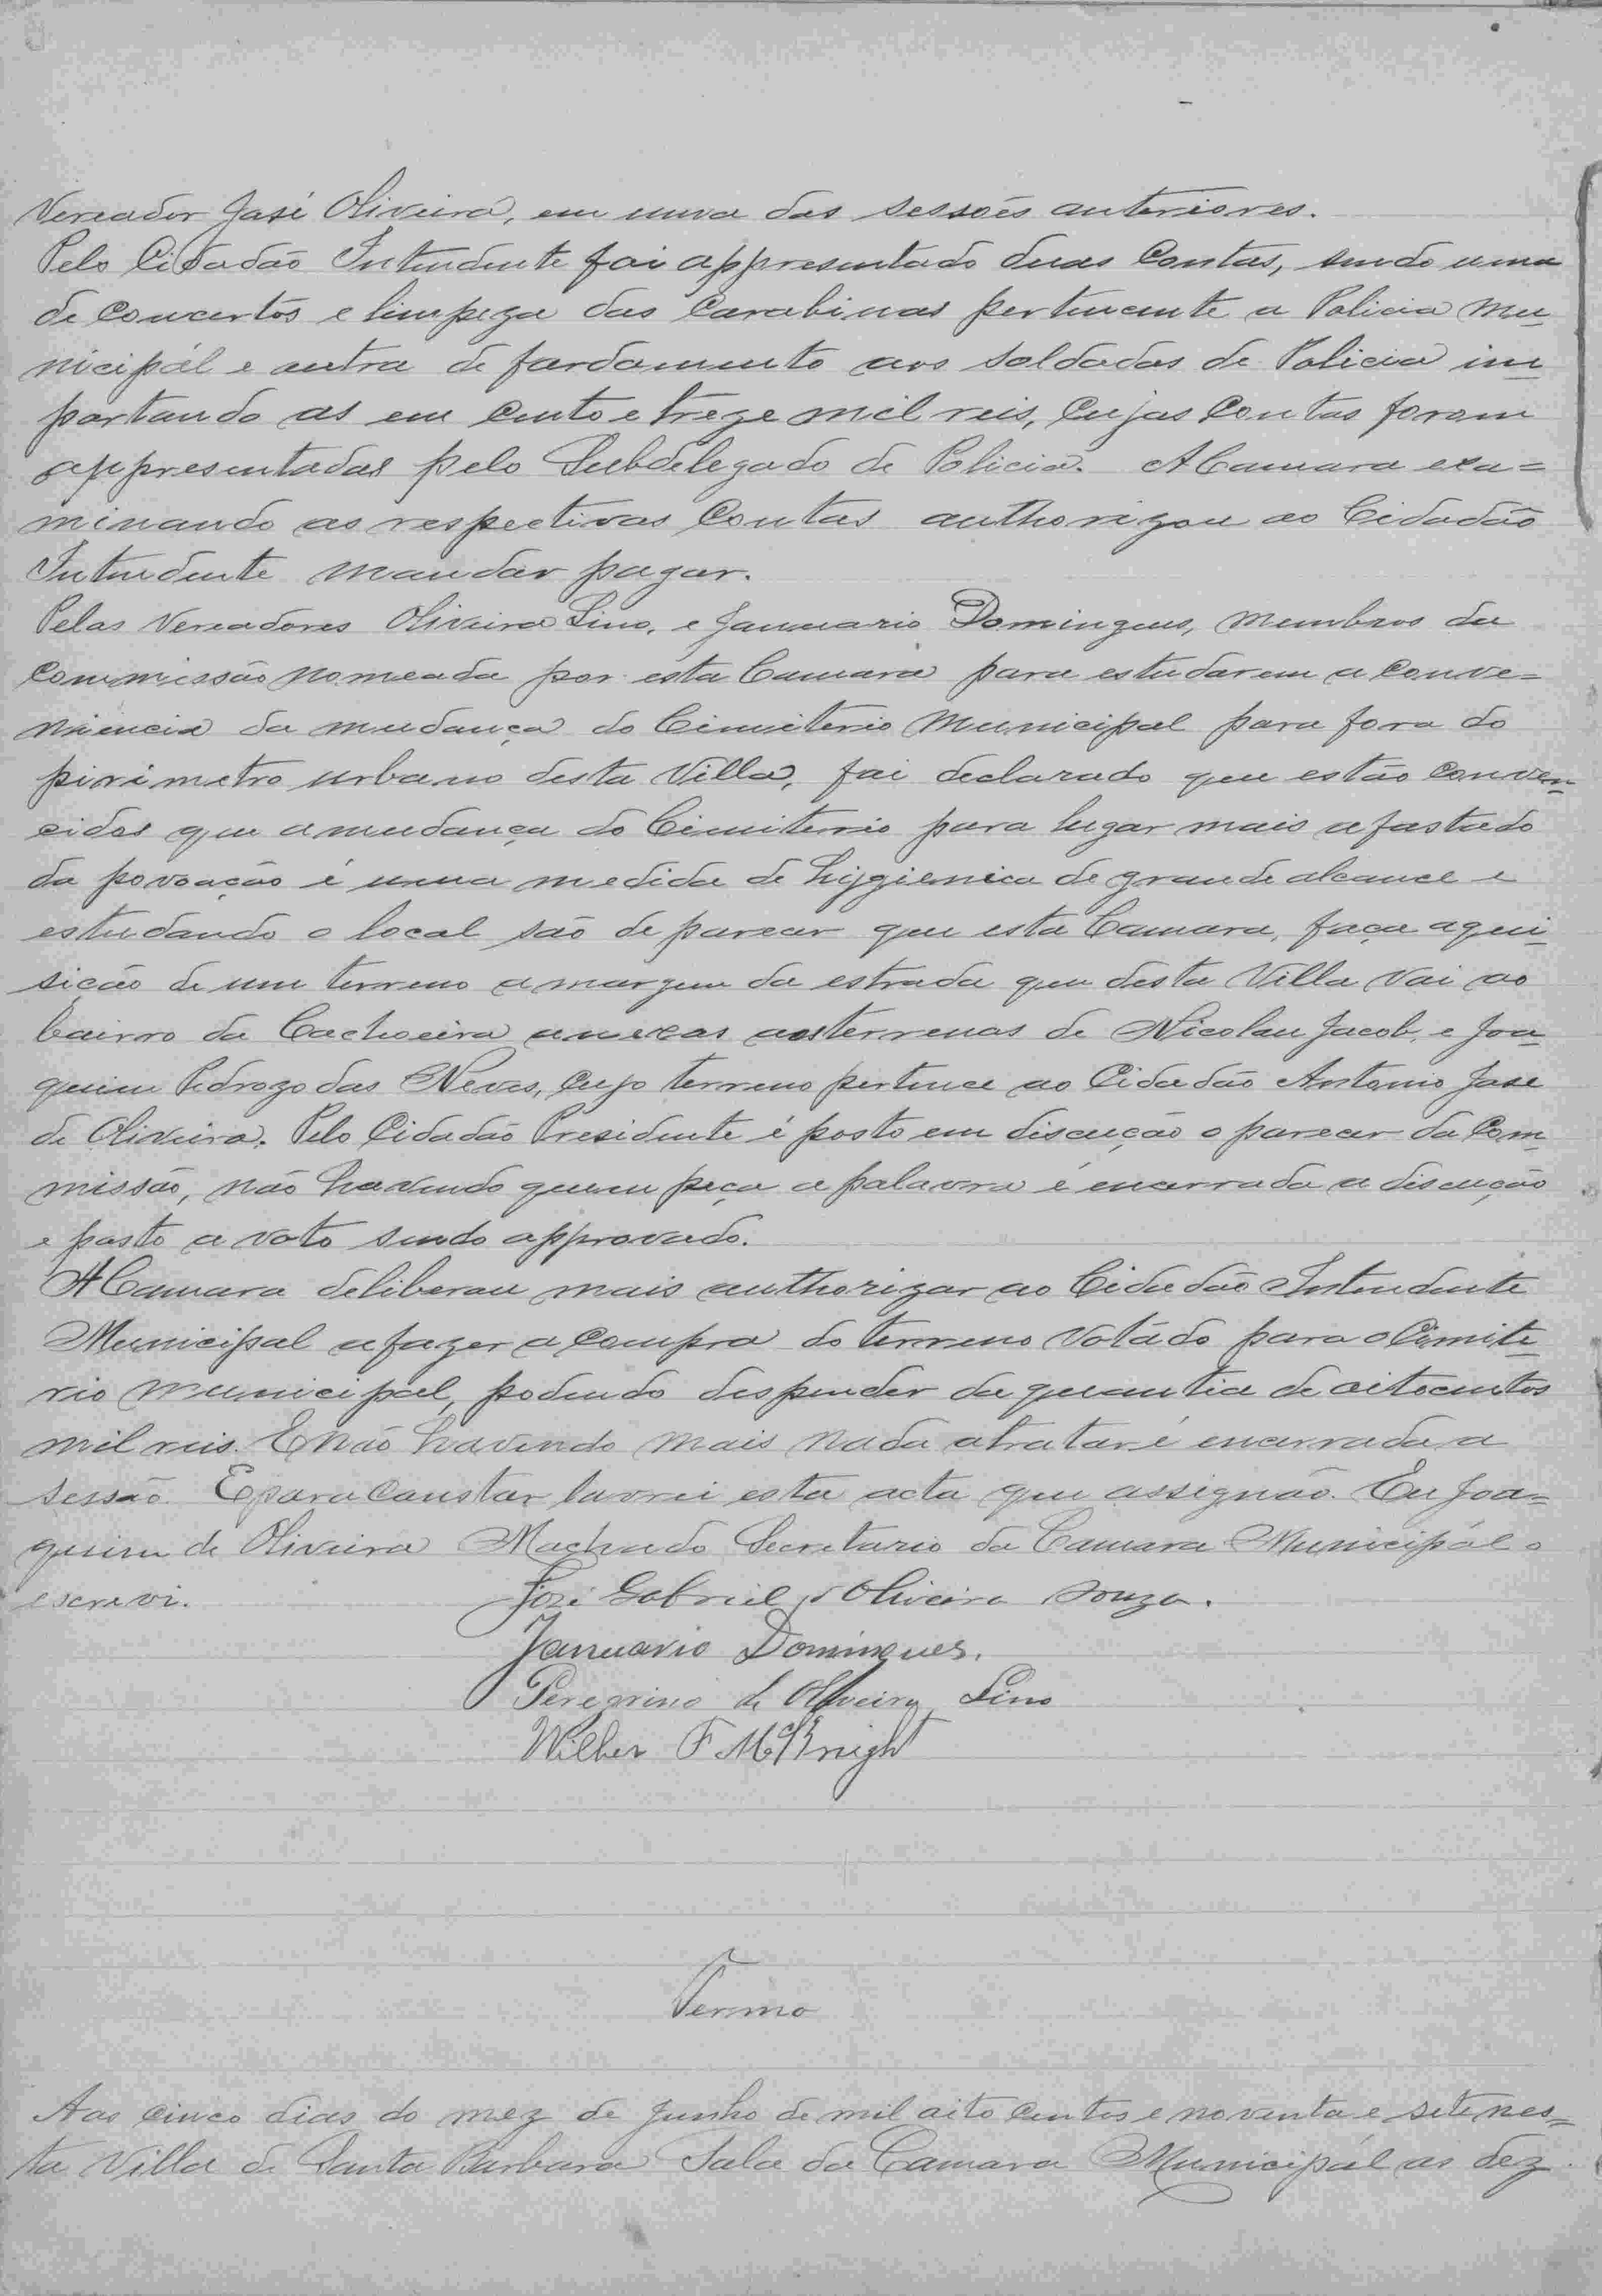 Vereador José Oliveira, em uma das sessões anteriores.
Pelo Cidadão Intendente foi appresentado duas Contas, sendo uma
de Concertos e limpeza das Carabinas pertencente a Policia Mu-
nicipál e outra de fardamento aos soldados de Policia im-
portando as em Cento e treze mil reis, Cujas Contas foram
appresentadas pelo Subdelegado de Policia. A Camara exa=
minando as respectivas Contas authorizou ao Cidadão
Intendente mandar pagar.
Pelos Vereadores Oliveira Lino, e Januario Domingues, Membros da
Commissão Nomeada por esta Camara para estudarem a Conve=
niencia da mudança do Cimiterio Municipal para fora do
pirimetro urbano desta Villa, foi declarado que estão Conven-
cidos que a mudança do Cimiterio para lugar mais afastado
da povoação é uma medida de hygienica de grande alcance e
estudando o local são de parecer que esta Camara, faça aqui-
sição de um terreno a margem da estrada que desta Villa Vai ao
bairro da Cachoeira anexas aos terrenos de Nicolau Jacob, e Joa-
quim Pedrozo das Neves, Cujo terreno pertence ao Cidadão Antonio José
de Oliveira. Pelo Cidadão Presidente é posto em discução o parecer da Com-
missão, não havendo quem peça a palavra é encerrada a discução
e posto a voto sendo approvado.
A Camara deliberou mais authorizar ao Cidadão Intendente
Municipal a fazer a Compra do terreno Votádo para o Cimite-
rio Municipal, podendo despender da quantia de oitocentos
mil reis. E não havendo mais nada a tratar é encerrada a
sessão. E para Constar lavrei esta acta que assignão. Eu Joa=
quim de Oliveira Machado Secretario da Camara Municipál o
escrevi.
José Gabriel d'Oliveira Souza.
Januario Domingues.
Peregrino de Oliveira Lino
Wilber F McKnight
Termo
Aos cinco dias do mez de Junho de mil oito centos e noventa e sete nes=
ta Villa de Santa Barbara Sala da Camara Municipál as dez